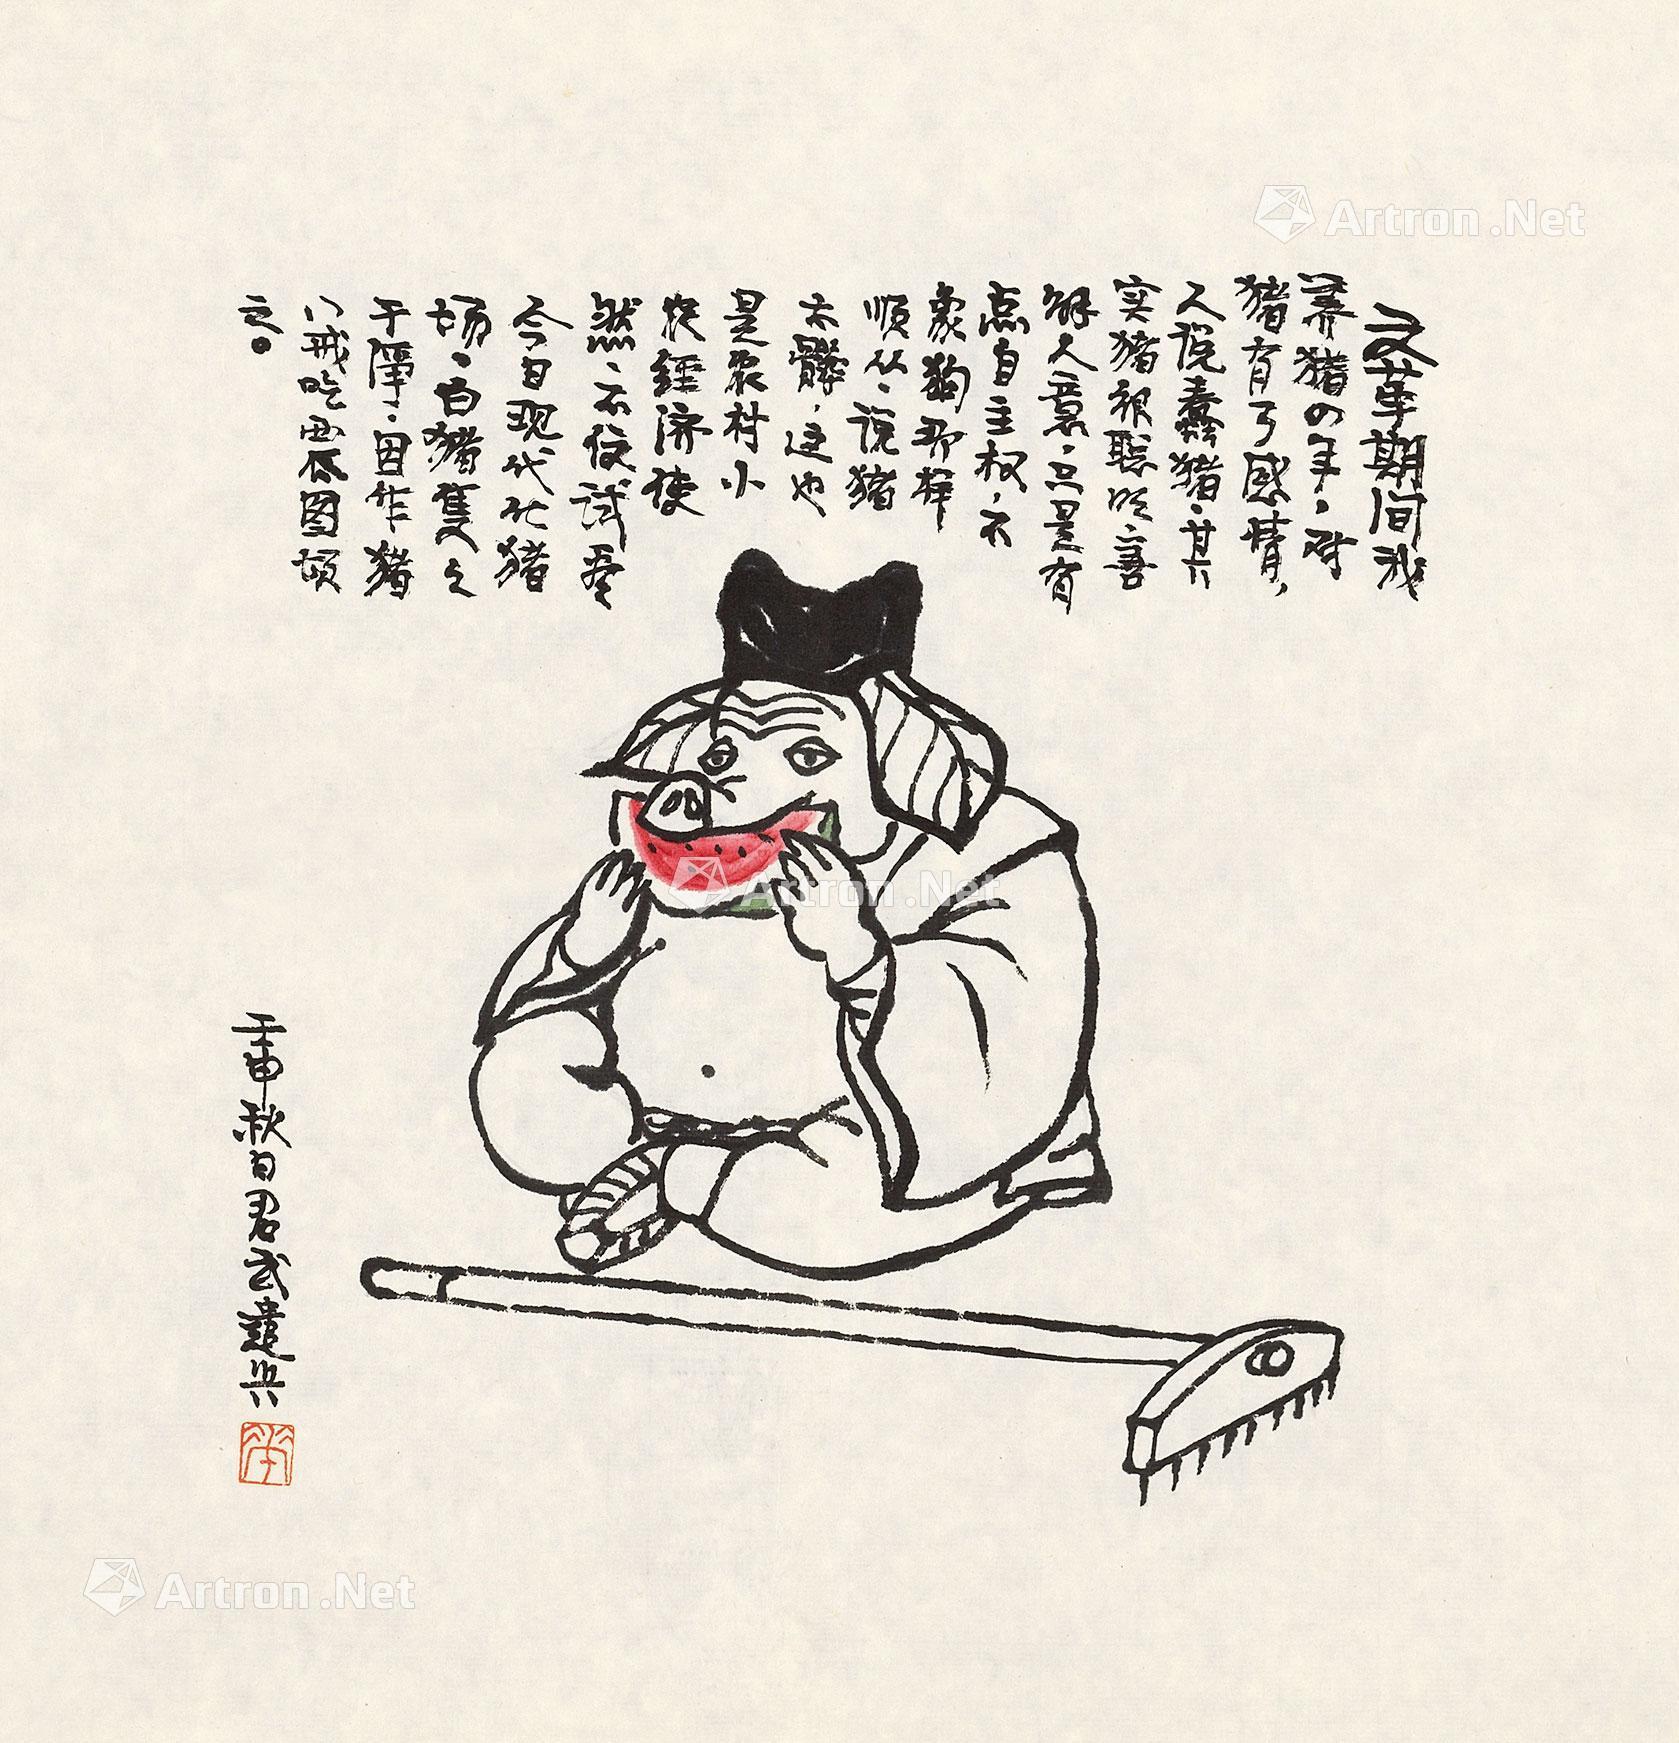 文革期间我
养猪四年，对
猪有了感情，
人说蠢猪，其
实猪很聪明善
解人意，只是有
点自主权，不
象狗那样
顺从，说猪
太髒，这也
是农村小
农经济使
然，不伩试看
今日现代化猪
场，白猪隻々
干净，因作猪
八戒吃西瓜图颂
之。
壬申秋日君武遣兴
Artron.Net
Artron.Net
Artron.Net